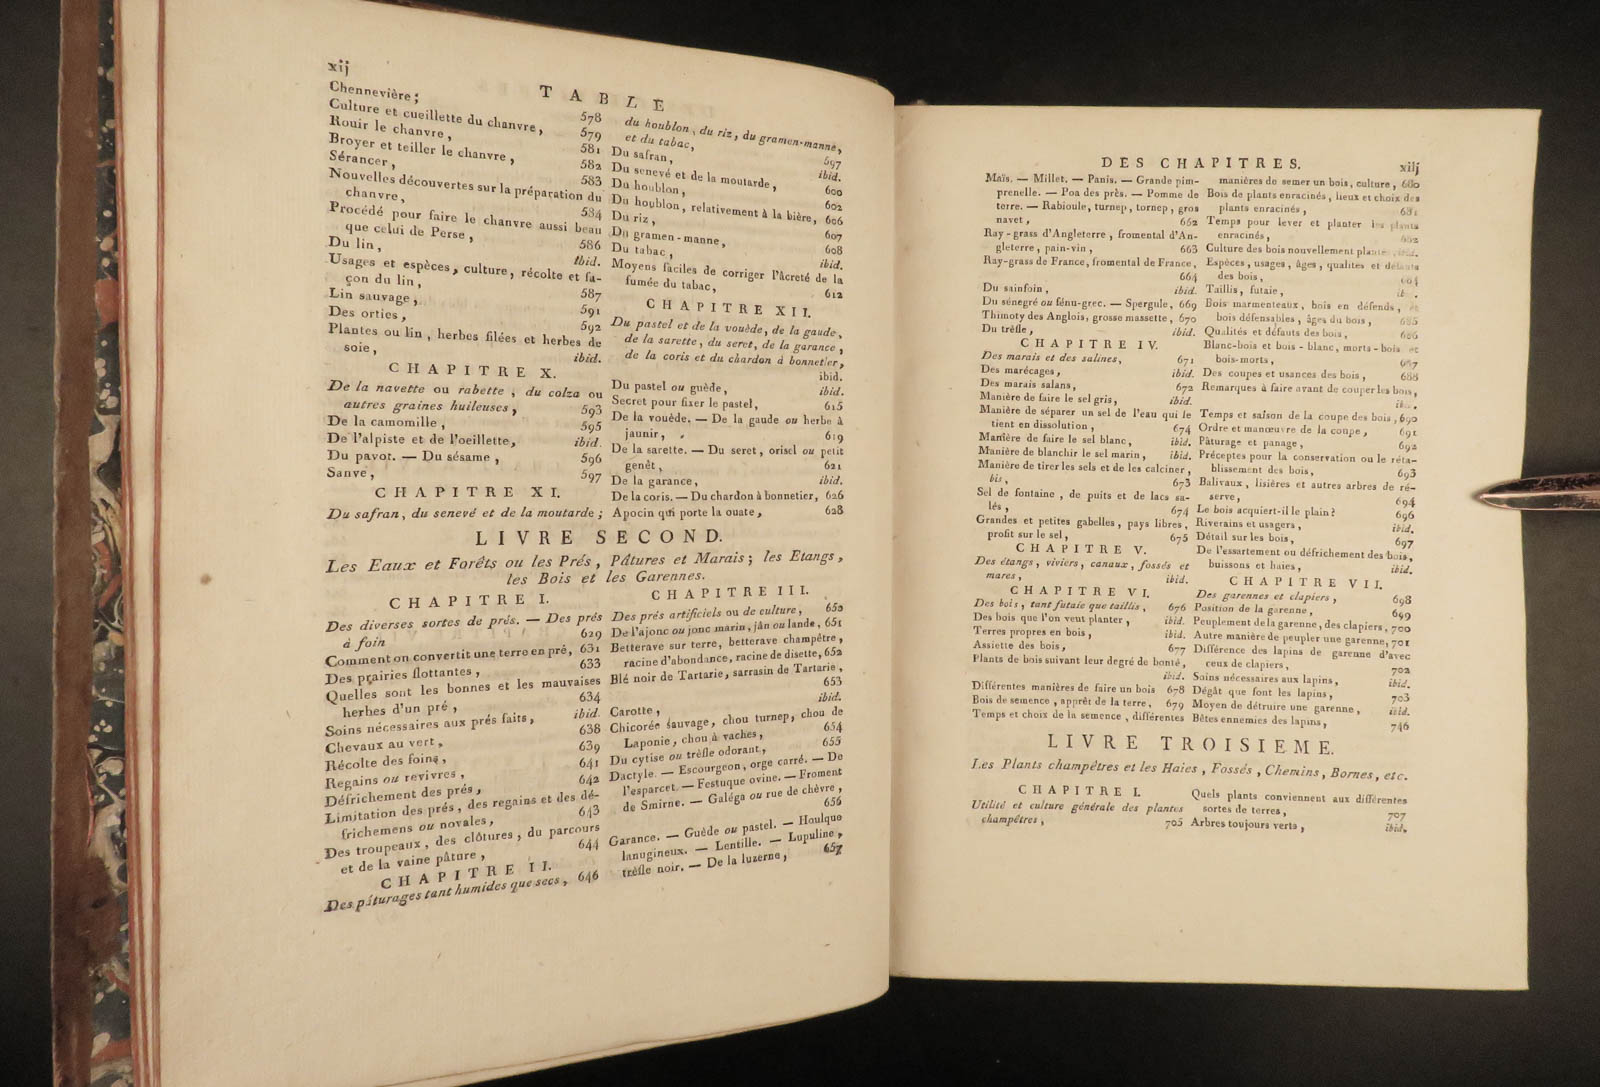 xij
TABLE
Chennevière ;
578
Culture et cueillette du chanvre,
579
Rouir le chanvre,
581
Broyer et teiller le chanvre,
582
Sérancer,
583
Nouvelles découvertes sur la préparation du
chanvre,
584
Procédé pour faire le chanvre aussi beau
que celui de Perse,
586
Du lin,
ibid.
Usages et espèces, culture, récolte et fa-
çon du lin,
587
Lin sauvage,
591
Des orties,
592
Plantes ou lin, herbes filées et herbes de
soie,
ibid.
CHAPITRE X.
De la navette ou rabette, du colza ou
autres graines huileuses,
593
De la camomille,
595
De l'alpiste et de l'oeillette,
ibid.
Du pavot. — Du sésame,
596
Sanve,
597
CHAPITRE XI.
Du safran, du senevé et de la moutarde ;
du houblon, du riz, du gramen-manne,
et du tabac,
597
Du safran,
ibid.
Du senevé et de la moutarde,
600
Du houblon,
602
Du houblon, relativement à la bière, 606
Du riz,
607
Du gramen-manne,
608
Du tabac,
ibid.
Moyens faciles de corriger l'âcreté de la
fumée du tabac,
612
CHAPITRE XII.
Du pastel et de la vouède, de la gaude,
de la sarette, du seret, de la garance,
de la coris et du chardon à bonnetier,
ibid.
Du pastel ou guède,
ibid.
Secret pour fixer le pastel,
615
De la vouède. — De la gaude ou herbe à
jaunir,
619
De la sarette. — Du seret, orisel ou petit
genêt,
621
De la garance,
ibid.
De la coris. — Du chardon à bonnetier, 626
Apocin qui porte la ouate,
628
LIVRE SECOND.
Les Eaux et Forêts ou les Prés, Pâtures et Marais ; les Etangs,
les Bois et les Garennes.
CHAPITRE I.
Des diverses sortes de prés. — Des prés
à foin
629
Comment on convertit une terre en pré, 631
Des prairies flottantes,
633
Quelles sont les bonnes et les mauvaises
herbes d'un pré,
634
Soins nécessaires aux prés faits,
ibid.
Chevaux au vert,
638
Récolte des foins,
639
Regains ou revivres,
641
Défrichement des prés,
642
Limitation des prés, des regains et des dé-
frichemens ou novales,
643
Des troupeaux, des clôtures, du parcours
et de la vaine pâture,
644
CHAPITRE II.
Des pâturages tant humides que secs, 646
CHAPITRE III.
Des prés artificiels ou de culture, 650
De l'ajonc ou jonc marin, jân ou lande, 651
Betterave sur terre, betterave champêtre,
racine d'abondance, racine de disette, 652
Blé noir de Tartarie, sarrasin de Tartarie,
653
Carotte,
ibid.
Chicorée sauvage, chou turnep, chou de
Laponie, chou à vaches,
654
Du cytise ou trèfle odorant,
655
Dactyle. — Escourgeon, orge carré. — De
l'esparcet. — Festuque ovine. — Froment
de Smirne. — Galéga ou rue de chèvre,
656
Garance. — Guède ou pastel. — Houlque
lanugineux. — Lentille. — Lupuline,
trèfle noir. — De la luzerne,
657
DES CHAPITRES.
xiij
Maïs. — Millet. — Panis. — Grande pim-
prenelle. — Poa des près. — Pomme de
terre. — Rabioule, turnep, tornep, gros
navet,
662
Ray-grass d'Angleterre, fromental d'An-
gleterre, pain-vin,
663
Ray-grass de France, fromental de France,
664
Du sainfoin,
ibid.
Du sénegré ou fénu-grec. — Spergule, 669
Thimoty des Anglois, grosse massette, 670
Du trèfle,
ibid.
CHAPITRE IV.
Des marais et des salines,
671
Des marécages,
ibid.
Des marais salans,
672
Manière de faire le sel gris,
ibid.
Manière de séparer un sel de l'eau qui le
tient en dissolution,
674
Manière de faire le sel blanc,
ibid.
Manière de blanchir le sel marin,
ibid.
Manière de tirer les sels et de les calciner,
bis,
673
Sel de fontaine, de puits et de lacs sa-
lés,
674
Grandes et petites gabelles, pays libres,
profit sur le sel,
675
CHAPITRE V.
Des étangs, viviers, canaux, fossés et
mares,
ibid.
CHAPITRE VI.
Des bois, tant futaie que taillis,
676
Des bois que l'on veut planter,
ibid.
Terres propres en bois,
ibid.
Assiette des bois,
677
Plants de bois suivant leur degré de bonté,
ibid.
Différentes manières de faire un bois 678
Bois de semence, apprêt de la terre, 679
Temps et choix de la semence, différentes
manières de semer un bois, culture, 680
Bois de plants enracinés, lieux et choix des
plants enracinés,
681
Temps pour lever et planter les plants
enracinés,
682
Culture des bois nouvellement plantés ibid.
Espèces, usages, âges, qualités et défauts
des bois,
664
Taillis, futaie,
Bois marmenteaux, bois en défends, et
bois défensables, âges du bois,
685
Qualités et défauts des bois,
686
Blanc-bois et bois-blanc, morts-bois et
bois-morts,
687
Des coupes et usances des bois,
688
Remarques à faire avant de couper les bois,
Temps et saison de la coupe des bois, 690
Ordre et manœuvre de la coupe,
691
Pâturage et panage,
692
Préceptes pour la conservation ou le réta-
blissement des bois,
693
Balivaux, lisières et autres arbres de ré-
serve,
694
Le bois acquiert-il le plain ?
696
Riverains et usagers,
ibid.
Détail sur les bois,
697
De l'essartement ou défrichement des bois,
buissons et haies,
ibid.
CHAPITRE VII.
Des garennes et clapiers,
698
Position de la garenne,
699
Peuplement de la garenne, des clapiers, 700
Autre manière de peupler une garenne, 701
Différence des lapins de garenne d'avec
ceux de clapiers,
702
Soins nécessaires aux lapins,
ibid.
Dégât que font les lapins,
703
Moyen de détruire une garenne,
ibid.
Bêtes ennemies des lapins,
746
LIVRE TROISIEME.
Les Plants champêtres et les Haies, Fossés, Chemins, Bornes, etc.
CHAPITRE I.
Utilité et culture générale des plantes
champêtres,
705
Quels plants conviennent aux différentes
sortes de terres,
707
Arbres toujours verts,
ibid.